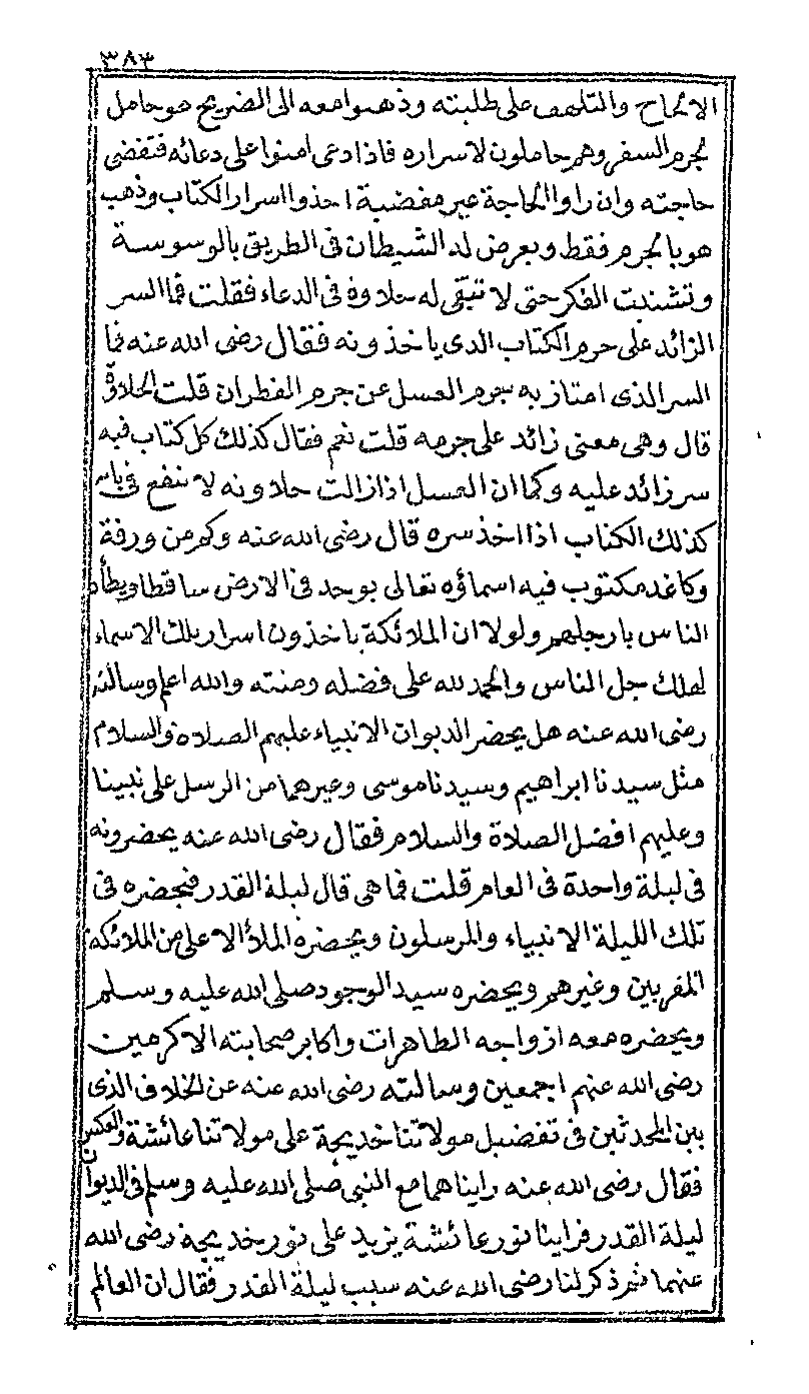 ٣٨٣
الالحاح والتلهف على طلبته وذهبوا معه الى الضريح هو حامل
لجرم السفر وهم حاملون لاسراره فاذا دعى امنوا على دعائه فتقضى
حاجته وان راوا الحاجة غير مقضية اخذوا اسرار الكتاب وذهب
هو بالجرم فقط ويعرض له الشيطان فى الطريق بالوسوسة
وتشتيت الفكر حتى لا تبقى له حلاوة فى الدعاء فقلت فما السر
الزائد على جرم الكتاب الذى ياخذونه فقال رضى الله عنه فما
السر الذى امتاز به جرم العسل عن جرم القطران قلت الحلاوة
قال وهى معنى زائد على جرمه قلت نعم فقال كذلك كل كتاب فيه
سر زائد عليه وكما ان العسل اذا زالت حلاوته لا ينفع فى باس
كذلك الكتاب اذا اخذ سره قال رضى الله عنه وكم من ورقة
وكاغد مكتوب فيه اسماؤه تعالى يوجد فى الارض ساقطا ويطأه
الناس بارجلهم ولولا ان الملائكة ياخذون اسرار تلك الاسماء
لهلك جل الناس والحمد لله على فضله ومنته والله اعلم وسالته
رضى الله عنه هل يحضر الديوان الانبياء عليهم الصلاة والسلام
مثل سيدنا ابراهيم وسيدنا موسى وغيرهما من الرسل على نبينا
وعليهم افضل الصلاة والسلام فقال رضى الله عنه يحضرونه
فى ليلة واحدة فى العام قلت فما هى قال ليلة القدر فيحضره فى
تلك الليلة الانبياء والمرسلون ويحضره الملأ الاعلى من الملائكة
المقربين وغيرهم ويحضره سيد الوجود صلى الله عليه وسلم
ويحضره معه ازواجه الطاهرات واكابر صحابته الاكرمين
رضى الله عنهم اجمعين وسالته رضى الله عنه عن الخلاف الذى
بين المحدثين فى تفضيل مولاتنا خديجة على مولاتنا عائشة والعكس
فقال رضى الله عنه رايناهما مع النبى صلى الله عليه وسلم فى الديوان
ليلة القدر فراينا نور عائشة يزيد على نور خديجة رضى الله
عنهما ثم ذكر لنا رضى الله عنه سبب ليلة القدر فقال ان العالم